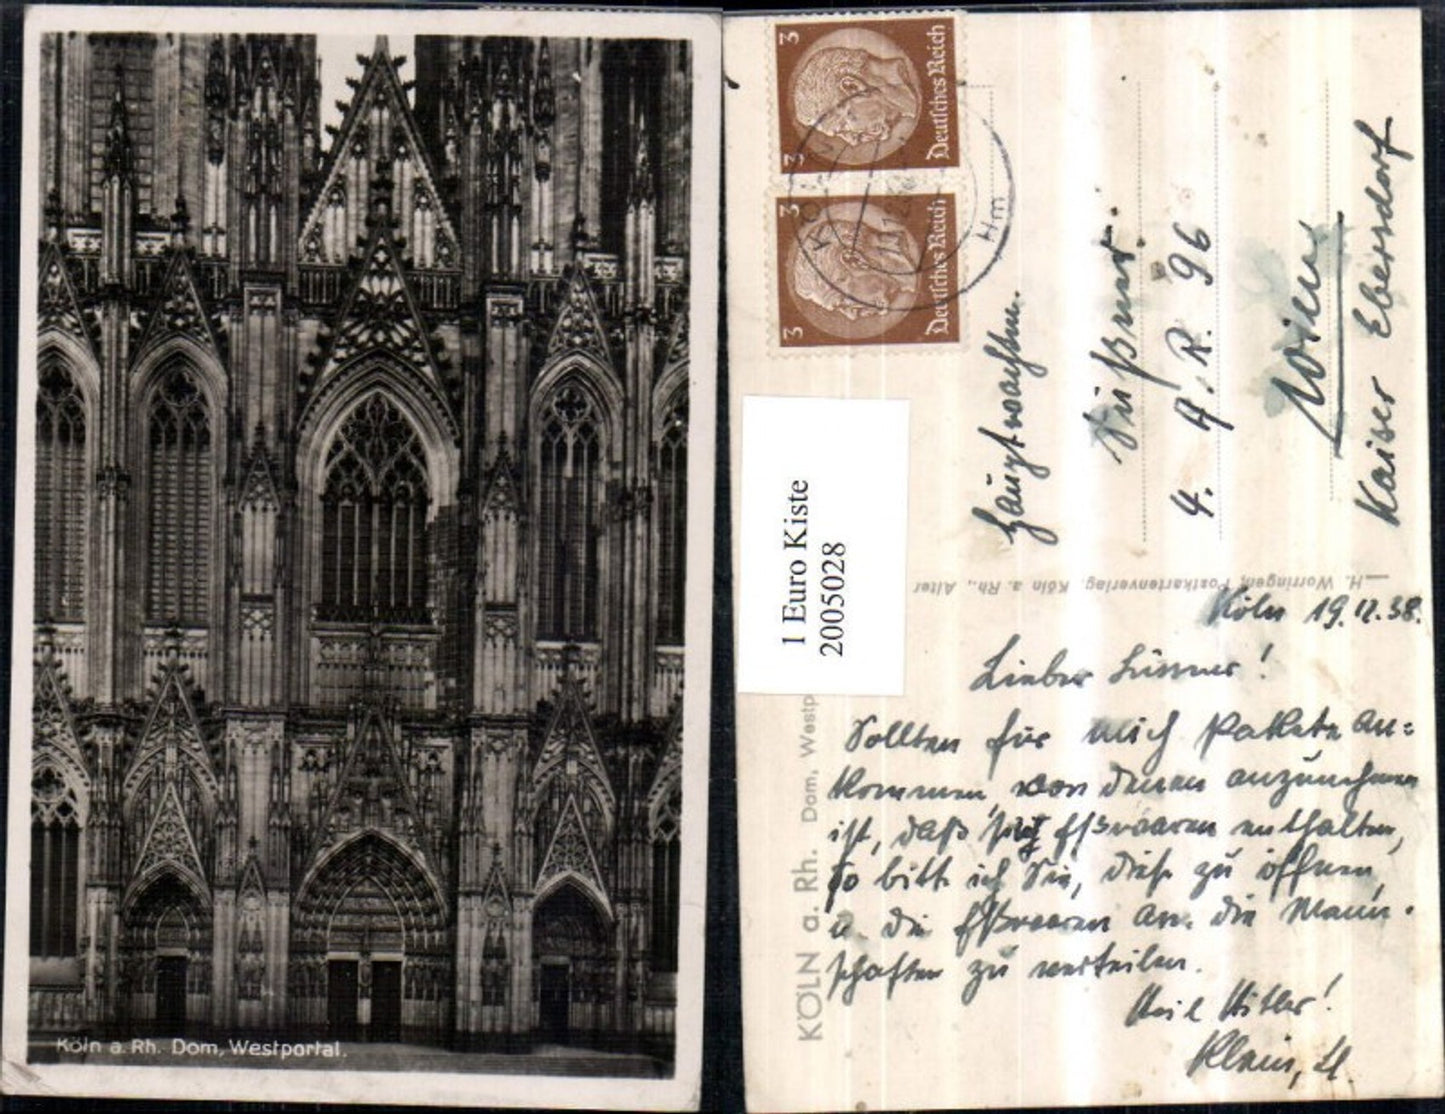 Köln a. Rh. Dom, Westportal.
3 3
Deutsches Reich
3 3
Deutsches Reich
Hauptwachtm.
Süßner
4. A. R. 96
Wien
Kaiser Ebersdorf
1 Euro Kiste
2005028
H. Worringen, Postkartenverlag, Köln a. Rh., Alter
KÖLN a. Rh. Dom, Westp
Köln 19.11.38.
Lieber Süssner!
Sollten für mich Pakete an=
kommen, von denen anzunehmen
ist, daß sie Eßwaaren enthalten,
so bitte ich Sie, diese zu öffnen,
u. die Eßwaaren an die Mann-
schaften zu verteilen.
Heil Hitler!
Klein,